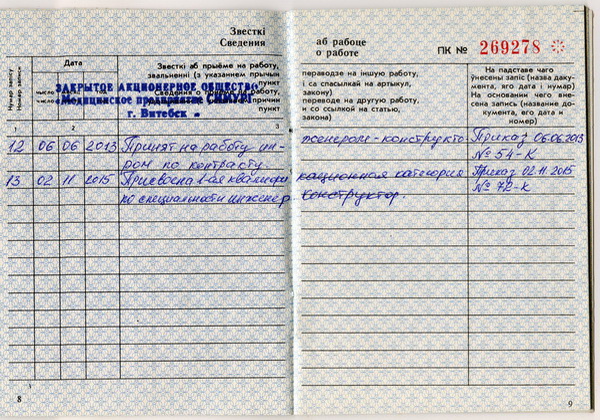 Звесткі
Сведения
Дата
Звесткі аб прыёме на работу,
звальненні (з указаннем прычын
пункт
Сведения о приёме на работу,
число
число
пункт
Нумар запісу
Номер записи
ЗАКРЫТОЕ АКЦИОНЕРНОЕ ОБЩЕСТВО
«Медицинское предприятие СИМУРГ»
г. Витебск
1
3
12 06 06 2013 Принят на работу ин-
ром по контракту.
13 02 11 2015 Присвоена 1-ая квалифи
по специальности инженер
8
аб рабоце
о работе
ПК № 269278
пераводзе на іншую работу,
і са спасылкай на артыкул,
закону)
переводе на другую работу,
и со ссылкой на статью,
закона)
На падставе чаго
ўнесены запіс (назва даку-
мента, яго дата і нумар)
На основании чего вне-
сена запись (название до-
кумента, его дата и
номер)
4
женером-конструкто Приказ 06.06.2013
№ 54-К
кационная категория Приказ 02.11.2015
конструктор. № 72-К
9